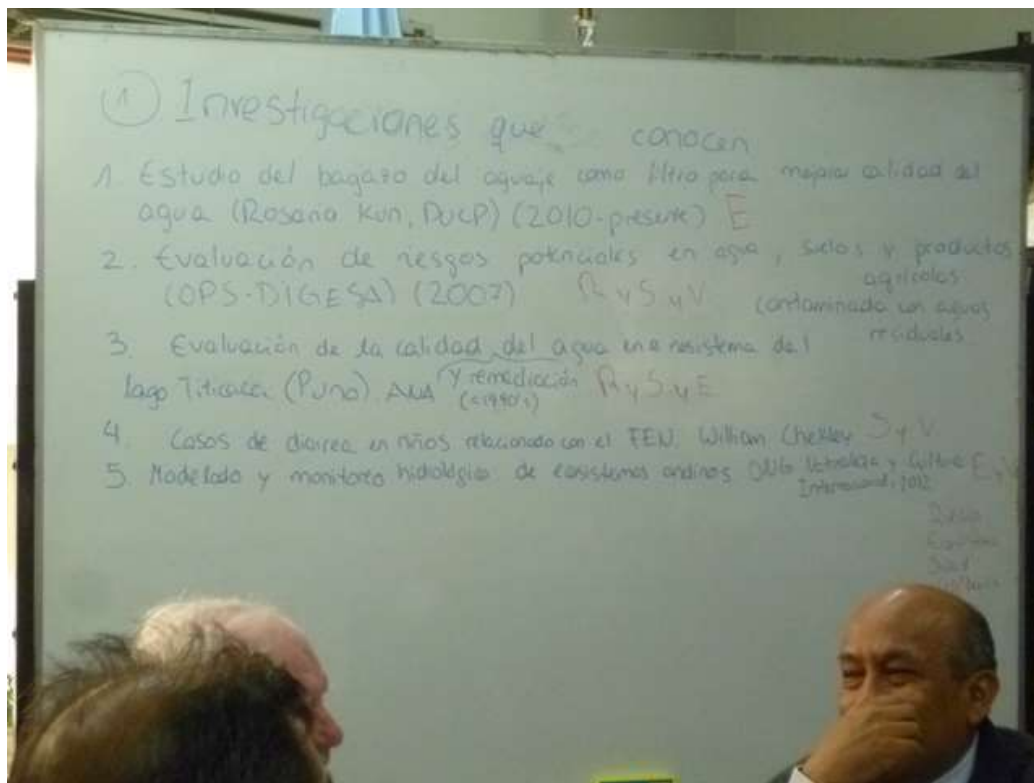 ① Investigaciones que conocen
1. Estudio del bagazo del aguaje como filtro para mejorar calidad del
agua (Rosario Kun, PUCP) (2010-presente) E
2. Evaluación de riesgos potenciales en agua, suelos y productos
agrícolas
(OPS-DIGESA) (2007) R y S y V
contaminada con aguas
residuales
3. Evaluación de la calidad del agua en
del
lago Titicaca (Puno) ANA y remediación R y S y E
4. Casos de diarrea en niños relacionado con el FEN. William Checkley S y V
5. Modelado y monitoreo hidrológico de ecosistemas andinos ONG y Cultura E y V
Internacional, 2012